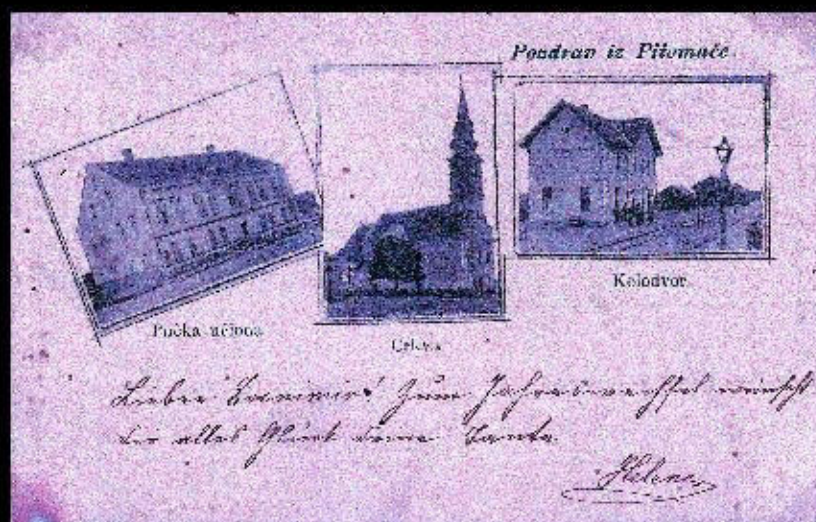 Pozdrav iz Pitomače.
Kolodvor.
Pučka učiona
Crkva
Lieber Zum Jahreswechsel wünscht
Dir alles Glück deine Tante
Helene